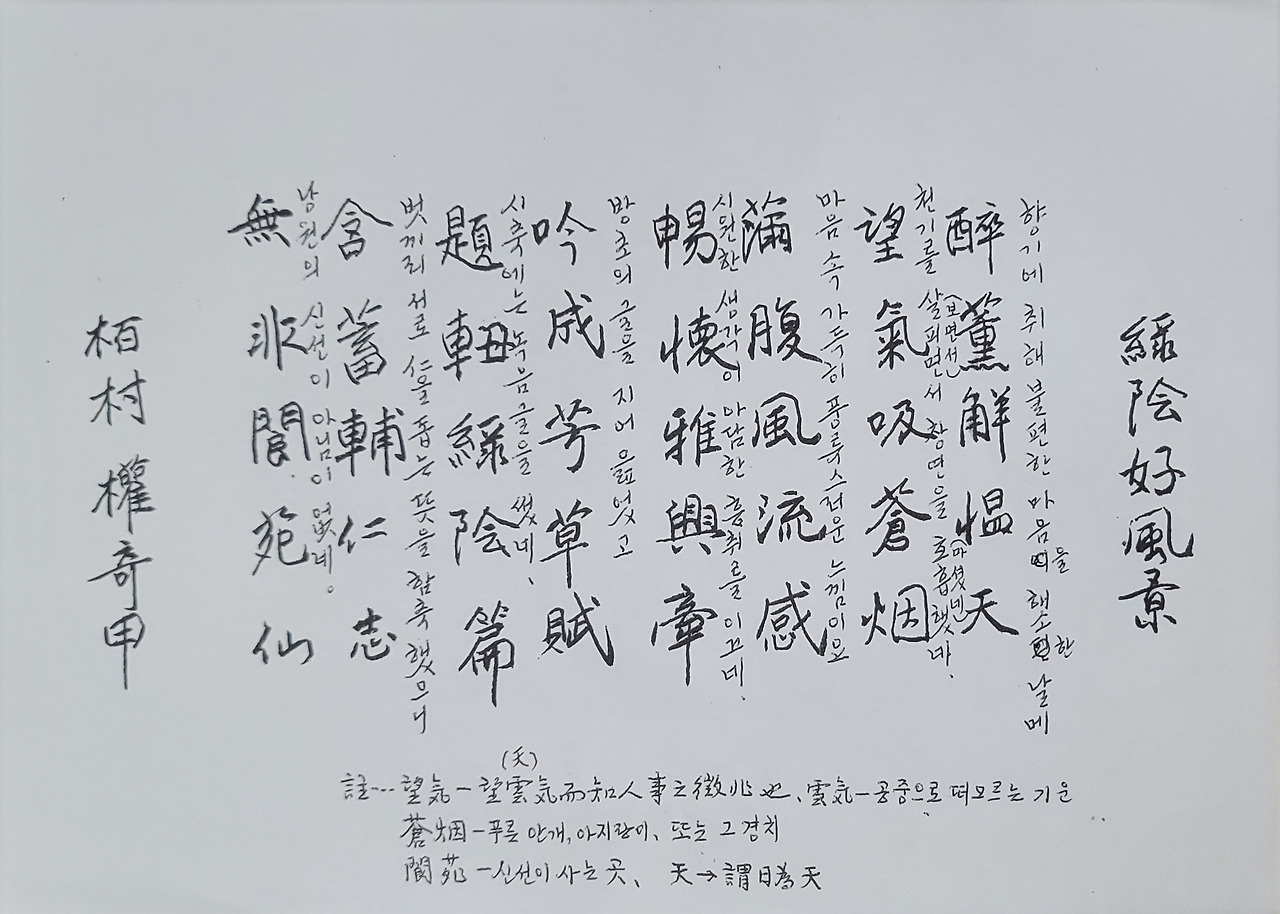 綠陰好風景
향기에 취해 불편한 마음을 해소한 날에
醉薰解慍天
천기를 살피면서(보면선) 창연을 호흡했네(마셨네).
望氣吸蒼烟
마음 속 가득히 풍류스러운 느낌이요
滿腹風流感
시원한 생각이 아담한 흥취를 이끄네.
暢懷雅興牽
방초의 글을 지어 읊었고
吟成芳草賦
시축에는 녹음글을 썼네.
題軸綠陰篇
벗끼리 서로 仁을 돕는 뜻을 함축했으니
含蓄輔仁志
남원의 신선이 아님이 없네。
無非閬苑仙
栢村 權奇甲
(天)
註… 望気－望雲気而知人事之徵兆也、雲気－공중으로 떠오르는 기운
蒼烟－푸른 안개, 아지랑이, 또는 그 경치
閬苑－신선이 사는 곳、 天→謂日為天